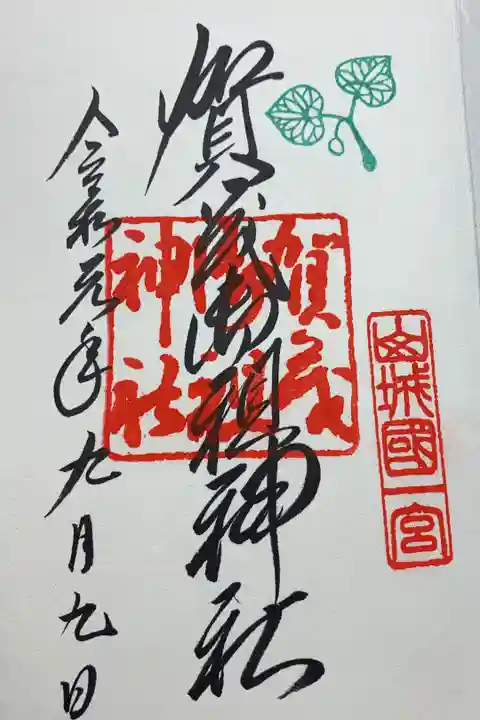 山城國一宮
賀茂御祖神社
賀茂
御祖
神社
令和元年九月九日